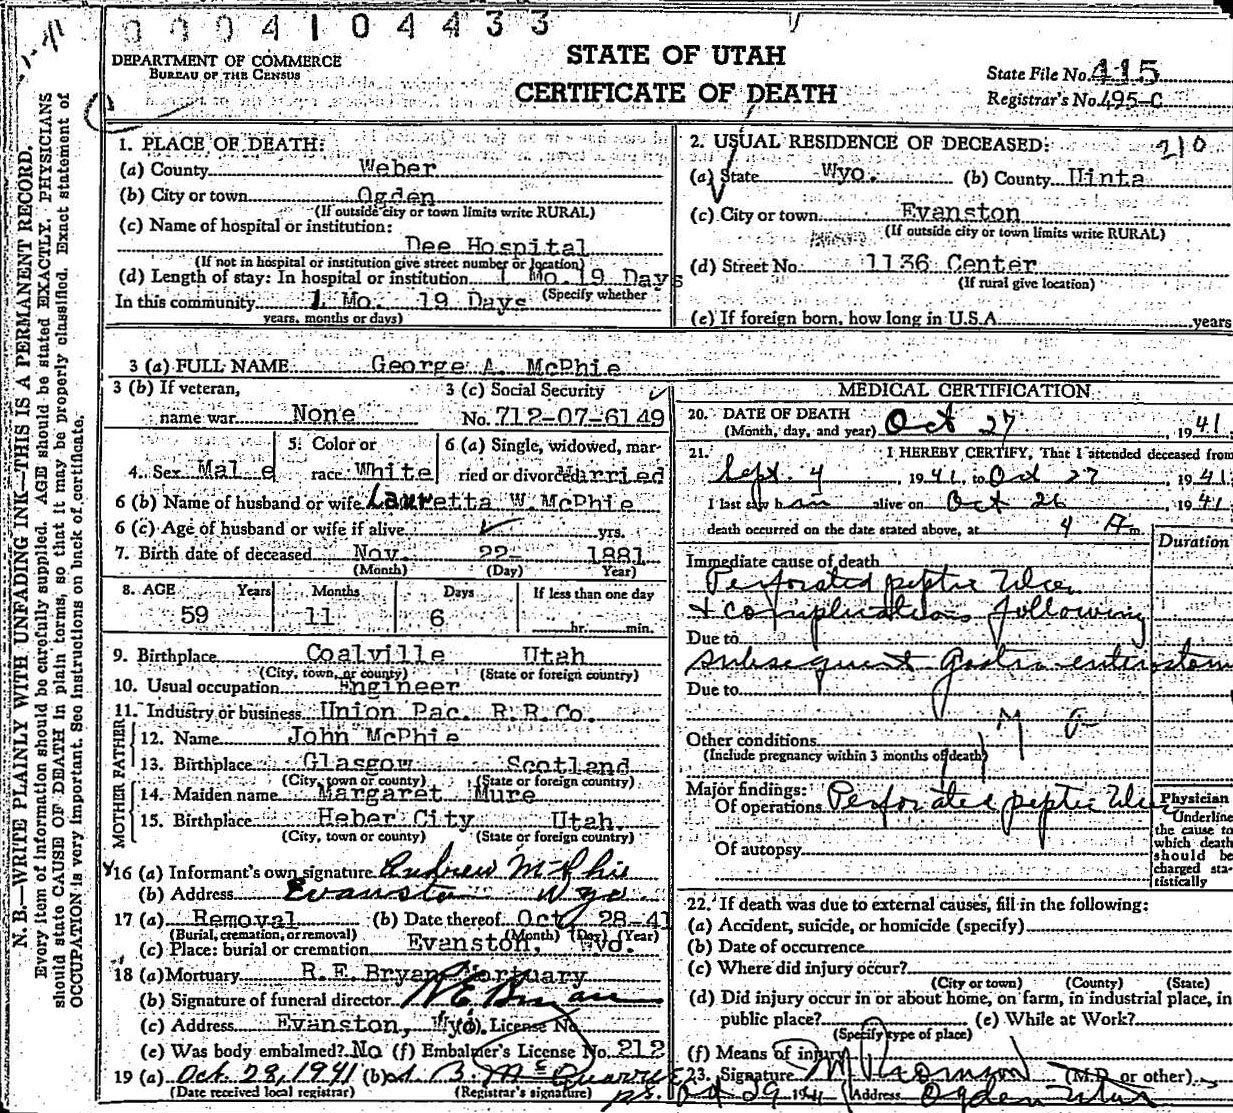 0004104433
DEPARTMENT OF COMMERCE
BUREAU OF THE CENSUS
STATE OF UTAH
CERTIFICATE OF DEATH
State File No. 415
Registrar's No. 495-C
N. B.—WRITE PLAINLY WITH UNFADING INK—THIS IS A PERMANENT RECORD.
Every item of information should be carefully supplied. AGE should be stated EXACTLY. PHYSICIANS
should state CAUSE OF DEATH in plain terms, so that it may be properly classified. Exact statement of
OCCUPATION is very important. See instructions on back of certificate.
1. PLACE OF DEATH:
(a) County Weber
(b) City or town Ogden
(If outside city or town limits write RURAL)
(c) Name of hospital or institution:
Dee Hospital
(If not in hospital or institution give street number or location)
(d) Length of stay: In hospital or institution 1 Mo. 19 Days
(Specify whether
In this community 1 Mo. 19 Days
years, months or days)
2. USUAL RESIDENCE OF DECEASED: 210
(a) State Wyo. (b) County Uinta
(c) City or town Evanston
(If outside city or town limits write RURAL)
(d) Street No. 1136 Center
(If rural give location)
(e) If foreign born, how long in U.S.A. years
3 (a) FULL NAME George A. McPhie
3 (b) If veteran, name war None
3 (c) Social Security No. 712-07-6149
4. Sex Male
5. Color or race White
6 (a) Single, widowed, married or divorced Married
6 (b) Name of husband or wife Lauretta W. McPhie
6 (c) Age of husband or wife if alive yrs.
7. Birth date of deceased Nov 22- 1881
(Month) (Day) Year)
8. AGE Years Months Days If less than one day
59 11 6 hr. min.
9. Birthplace Coalville Utah
(City, town, or county) (State or foreign country)
10. Usual occupation Engineer
11. Industry or business Union Pac. R.R.Co.
FATHER
12. Name John McPhie
13. Birthplace Glasgow Scotland
(City, town or county) (State or foreign country)
MOTHER
14. Maiden name Margaret Mure
15. Birthplace Heber City Utah.
(City, town or county) (State or foreign country)
16 (a) Informant's own signature Andrew McPhie
(b) Address Evanston Wyo.
17 (a) Removal (b) Date thereof Oct 28-41
(Burial, cremation, or removal) (Month) (Day) (Year)
(c) Place: burial or cremation Evanston, Wyo.
18 (a) Mortuary R.E. Bryan Mortuary
(b) Signature of funeral director R E Bryan
(c) Address Evanston, Wyo. License No.
(e) Was body embalmed? No (f) Embalmer's License No. 212
19 (a) Oct. 29, 1941 (b)
(Date received local registrar) (Registrar's signature)
MEDICAL CERTIFICATION
20. DATE OF DEATH
(Month, day, and year) Oct 27, 1941
21. I HEREBY CERTIFY, That I attended deceased from
Sept. 4, 1941, to Oct 27, 1941
I last saw h im alive on Oct 26, 1941
death occurred on the date stated above, at 4 A m.
Duration
Immediate cause of death
Perforated peptic Ulcer
+ complications following
Due to
subsequent gastro-enterostom
Due to
Other conditions
(Include pregnancy within 3 months of death)
Major findings:
Of operations Perforated peptic Ulcer
Of autopsy
Physician
Underline
the cause to
which death
should be
charged sta-
tistically
22. If death was due to external causes, fill in the following:
(a) Accident, suicide, or homicide (specify)
(b) Date of occurrence
(c) Where did injury occur?
(City or town) (County) (State)
(d) Did injury occur in or about home, on farm, in industrial place, in
public place? (e) While at Work?
(Specify type of place)
(f) Means of injury
23. Signature (M.D. or other)
Oct 29 1941 Address Ogden Utah